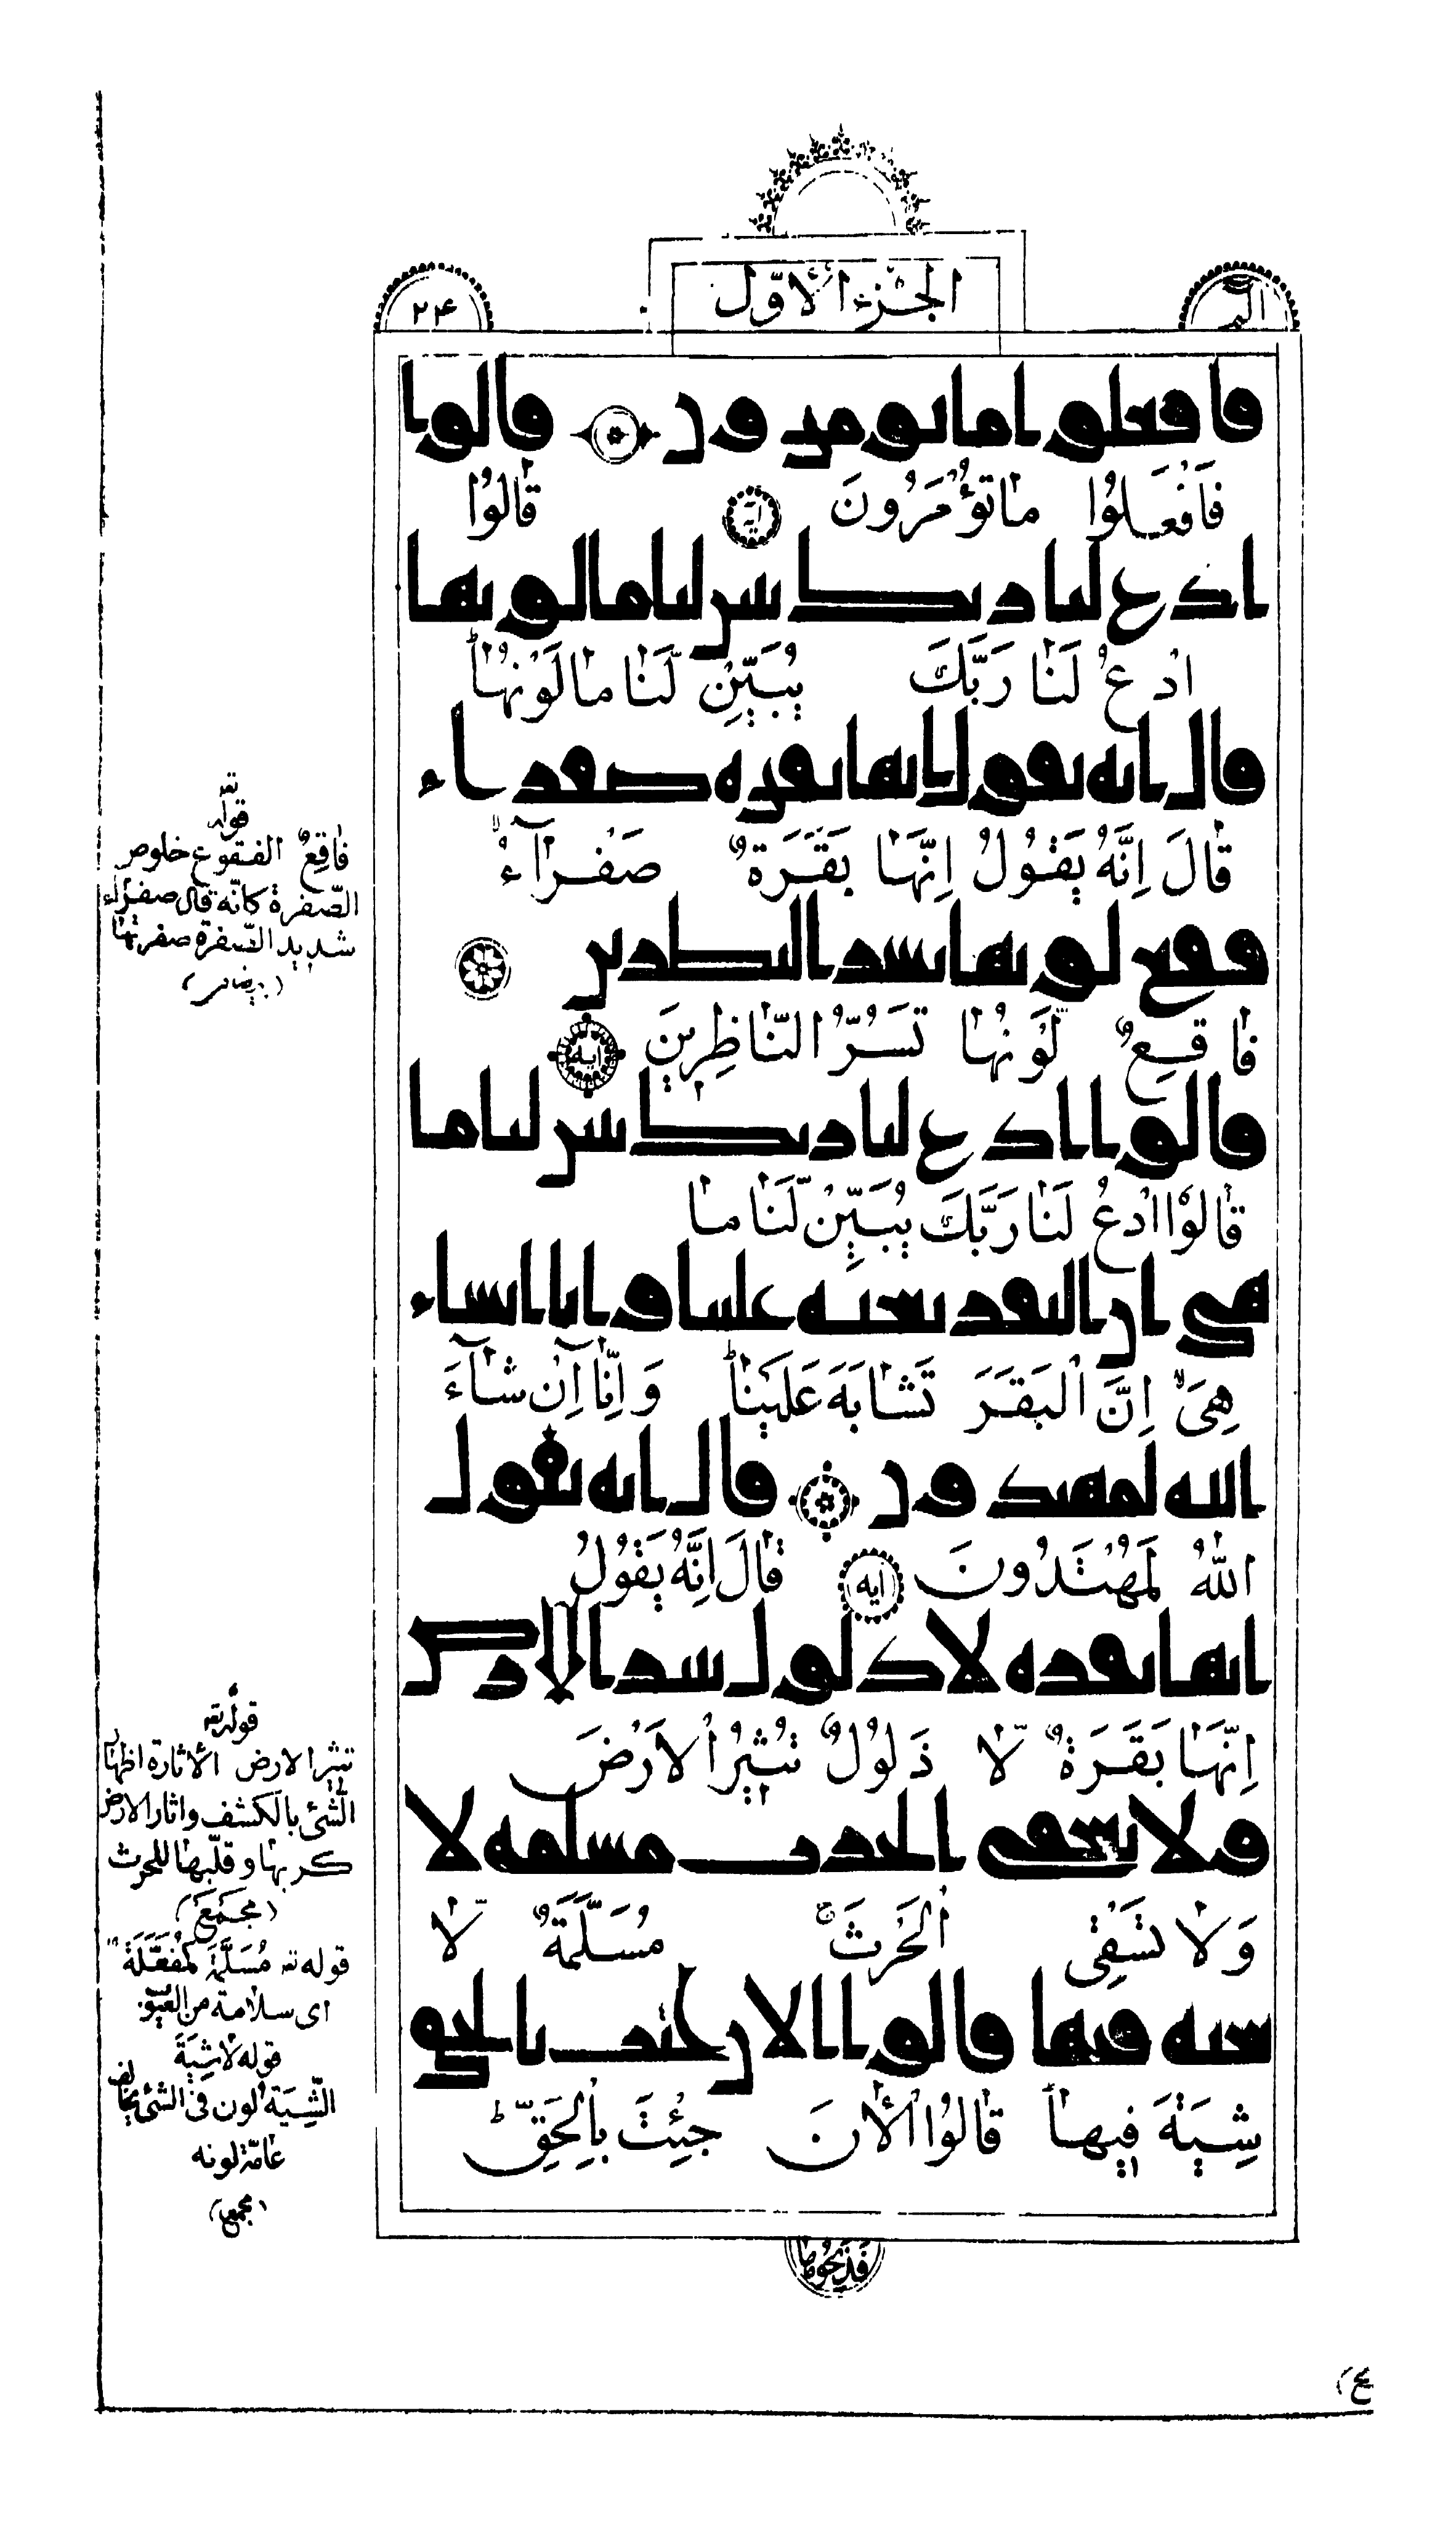 الم
الجزء الاوّل
۲۴
فافعلوا ما تومرون قالوا
فَافْعَلُوا مٰا تُؤْمَرُونَ ايه قٰالُوا
ادع لنا ربك يبين لنا ما لونها
ادْعُ لَنٰا رَبَّكَ يُبَيِّنْ لَنٰا مٰا لَوْنُهٰا ط
قال انه يقول انها بقره صفراء
قٰالَ اِنَّهُ يَقُولُ اِنَّهٰا بَقَرَةٌ صَفْرٰآءُ لا
فقع لونها تسر النظرين
فٰاقِعٌ لَوْنُهٰا تَسُرُّ النّٰاظِرِينَ ايه
قالوا ادع لنا ربك يبين لنا ما
قٰالُوا ادْعُ لَنٰا رَبَّكَ يُبَيِّنْ لَنٰا مٰا
هي ان البقر تشبه علينا و انا ان شاء
هِيَ لا اِنَّ الْبَقَرَ تَشٰابَهَ عَلَيْنٰا ط وَ اِنّٰآ اِنْ شٰآءَ
الله لمهتدون قال انه يقول
اللّٰهُ لَمُهْتَدُونَ ايه قٰالَ اِنَّهُ يَقُولُ
انها بقره لا ذلول تثير الارض
اِنَّهٰا بَقَرَةٌ لٰا ذَلُولٌ تُثِيرُ الْاَرْضَ
ولا تسقي الحرث مسلمه لا
وَلٰا تَسْقِى الْحَرْثَ ج مُسَلَّمَةٌ لٰا
شيه فيها قالوا الان جئت بالحق
شِيَةَ فِيهٰا ط قٰالُوا الْاٰنَ جِئْتَ بِالْحَقِّ ط
فَذَبَحُوهٰا
قوله تع
فٰاقِعٌ الفقوع خلوص
الصّفرة كانّه قال صفراء
شديد الصّفرة صفرتها
قوله تع
تثير الارض الأثارة اظهار
الشّئ بالكشف و اثار الارض
كربها و قلّبها للحرث
(مجمَع)
قوله تع مُسَلَّمَة كمُفَعَّلَة
اى سلامة من العيوب
قوله لٰا شِيَةَ
الشِّيَة لون فى الشئ يخالف
عامّة لونه
(مجمع)
ع)